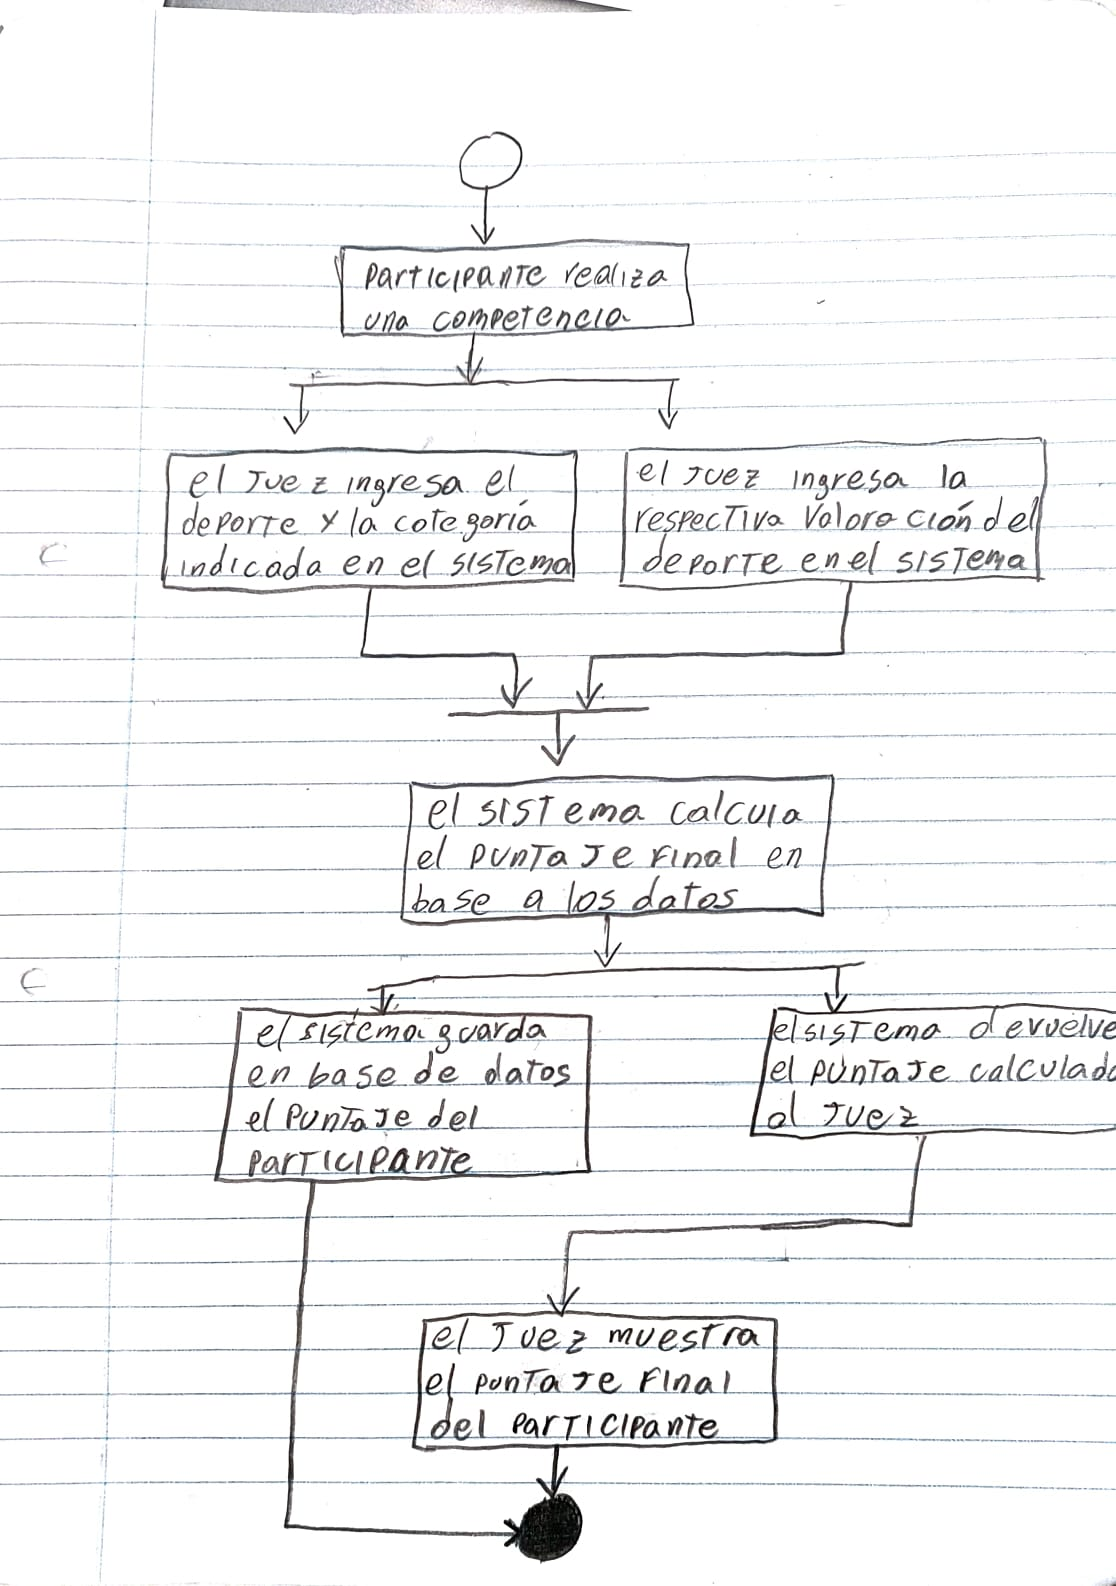 Participante realiza
una competencia
el Juez ingresa el
deporte y la categoría
indicada en el sistema
el Juez ingresa la
respectiva Valoración del
deporte en el sistema
el sistema calcula
el puntaje final en
base a los datos
el sistema guarda
en base de datos
el puntaje del
participante
el sistema devuelve
el puntaje calculado
al Juez
el Juez muestra
el puntaje final
del participante